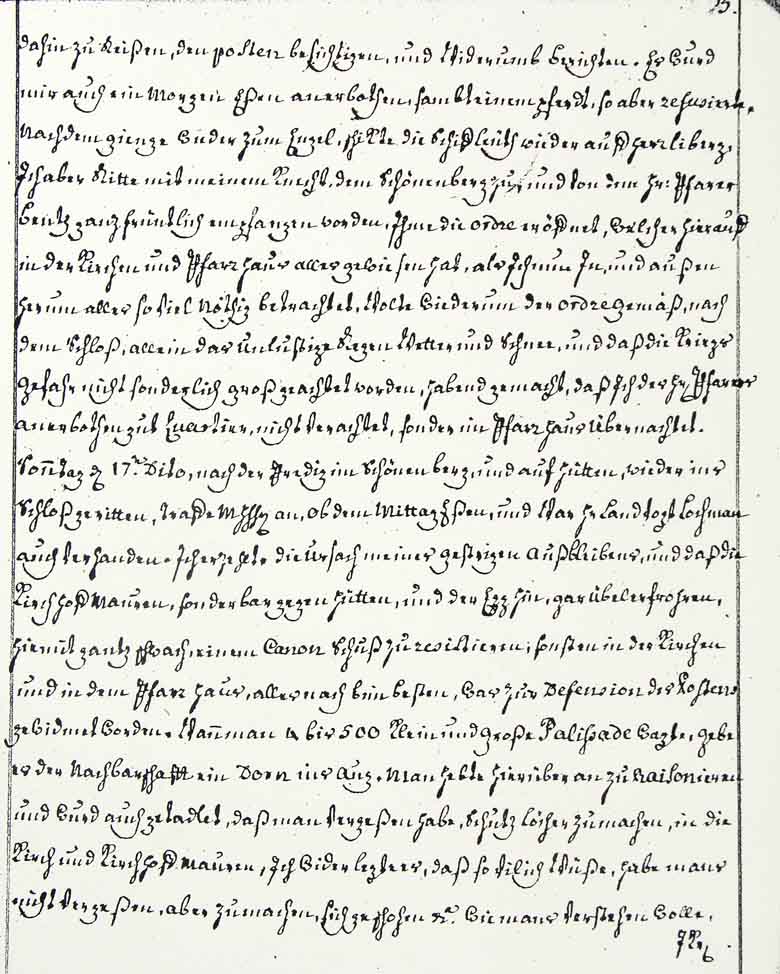 dahin zu Reißen, den posten besichtigen, und Widerumb berichten. Es Wurd
mir auch ein Morgen Eßen anerbothen, sambt einem pferdt, so aber refusierte.
Nachdem gienge Wider zum Enzel, schikte die Schifleüth wieder auf herrliberg.
Ich aber Ritte mit meinem Knecht, dem Schönenberg zu, und von dem Hr: Pfarrer
Beütz ganz früntlich empfangen worden, Ihme die ordre eröfnet, Welcher hierauf
in der Kirchen und Pfarrhaus alles gewiesen hat, als Ich nun In, und außen
herum alles so viel Nöthig betrachtet, Wolte Wiederum der ordre gemäß, nach
dem Schloß, allein das Unlustige Regen Wetter und Schnee, und daß die Kriegs
Gefahr nicht sonderlich groß geachtet worden, habend gemacht, daß Ich des Hr. Pfarrers
anerbothen gut Quartier, nicht Verachtet, sonder im Pfarrhaus übernachtet.
Sontag d 17.ten Dito, nach der Predig im Schönenberg, und auf Hütten, wieder ins
Schloß geritten, trafe an, ob dem Mittag Eßen, und War Hr Landvogt Lochman
auch Verhanden. Ich erzehlte die Ursach meines gestrigen Außbleibens, und daß die
Kirchhof Mauren, sonderbar gegen Hütten, und der Egg hin, gar übel erfrohren,
hiemit gantz schwach, einem Canon Schuß zu resistieren; sonsten in der Kirchen
und in dem Pfarr Haus, alles nach bim besten, Was zur Defension des Postens
gewidmet Worden. Wan man 4 bis 500 Klein und große Palisade Wagte, gebe
es der Nachbarschafft ein Dorn ins Aug. Man hebte hierüber an zu Raisonieren
und Wurd auch getadlet, daß man Vergeßen habe, Schutz löcher zu machen, in die
Kirch und Kirchhof Mauren, Ich Widerlegte es, daß so vil ich Wüße, habe mans
nicht Vergeßen, aber zu machen, sich geschohen &c. Wie mans Verstehen Wolle,